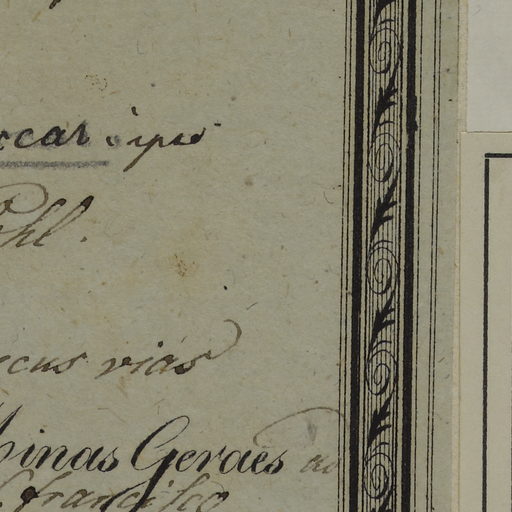 ocar ipse
ohl.
ecus vias
Minas Geraes ad
S. francisco